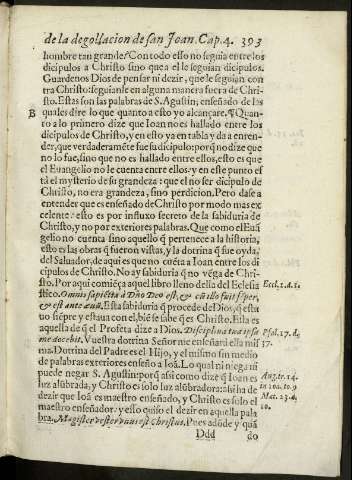 de la degollacion de san Joan. Cap. 4. 393
hombre tan grande? Con todo esso no seguia entre los
dicipulos a Christo sino que a el le seguian dicipulos.
Guardenos Dios de pensar ni dezir, que le seguian con
tra Christo: seguianle en alguna manera fuera de Chri-
sto. Estas son las palabras de S. Agustin, enseñado de las
B quales dire lo que quanto a esto yo alcançare. ¶ Quan-
to a lo primero dize que Ioan no es hallado entre los
dicipulos de Christo, y en esto ya entabla y da a enten-
der, que verdaderamẽte fue su dicipulo: porq̃ no dize que
no lo fue, sino que no es hallado entre ellos, esto es que
el Euangelio no le cuenta entre ellos: y en este punto es
tá el mysterio de su grandeza: que el no ser dicipulo de
Christo, no era grandeza, sino perdicion. Pero dase a
entender que es enseñado de Christo por modo mas ex
celente: esto es por influxo secreto de la sabiduria de
Christo, y no por exteriores palabras. Que como el Euã
gelio no cuenta sino aquello q̃ pertenece a la historia,
esto es las obras q̃ fueron vistas, y la dotrina q̃ fue oyda,
del Saluador, de aqui es que no cuẽta a Ioan entre los di
cipulos de Christo. No ay sabiduria q̃ no vẽga de Chri-
sto. Por aqui comiẽça aquel libro lleno della del Eclesia
stico. Omnis sapiẽtia à Dño Deo est, & cũ illo fuit sẽper,
& est ante æuũ. Esta sabiduria q̃ procede de Dios, q̃ estu
uo siẽpre y estaua con el, biẽ se sabe q̃ es Christo. Esta es
aquella de q̃ el Profeta dize a Dios. Disciplina tua ipsa
me docebit. Vuestra dotrina Señor me enseñará ella mis
ma. Dotrina del Padre es el Hijo, y el mismo sin medio
de palabras exteriores enseño a Ioã. Lo qual ni niega ni
puede negar S. Agustin: porq̃ assi como dize q̃ Ioan es
alũbrado, y Christo es solo luz alũbradora: assi ha de
dezir que Ioã es maestro enseñado, y Christo es solo el
maestro enseñador: y esso quiso el dezir en aquella pala
bra. Magister vester vnus est Christus. Pues adõde y quã
Ddd do
Eccl. 1. d. 1.
Psal. 17. d.
37.
Aug. tr. 14.
in Ioa. to. 9
Mat. 23. d.
10.